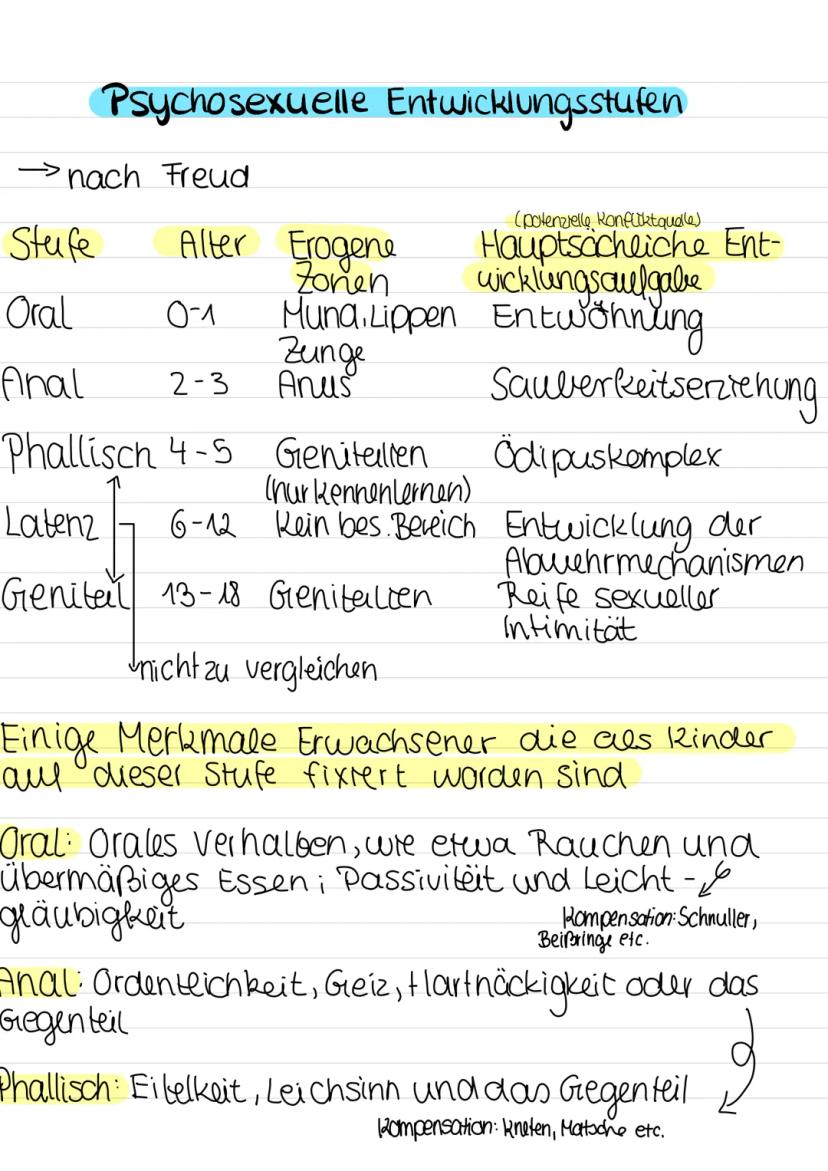 Psychosexuelle Entwicklungsstufen
→ nach Freud
(potenzielle Konfliktquelle)
Stufe Alter Erogene Hauptsächliche Ent-
Zonen wicklungsaufgabe
Oral 0-1 Mund, Lippen Entwöhnung
Zunge
Anal 2-3 Anus Sauberkeitserziehung
Phallisch 4-5 Genitalien Ödipuskomplex
(nur kennenlernen)
Latenz 6-12 Kein bes. Bereich Entwicklung der
Abwehrmechanismen
Genital 13-18 Genitalien Reife sexueller
Intimität
nicht zu vergleichen
Einige Merkmale Erwachsener die als Kinder
auf dieser Stufe fixiert worden sind
Oral: Orales Verhalten, wie etwa Rauchen und
übermäßiges Essen; Passivität und Leicht-
gläubigkeit
Kompensation: Schnuller,
Beißringe etc.
Anal: Ordentlichkeit, Geiz, Hartnäckigkeit oder das
Gegenteil
Phallisch: Eitelkeit, Leichsinn und das Gegenteil
Kompensation: kneten, Matsche etc.